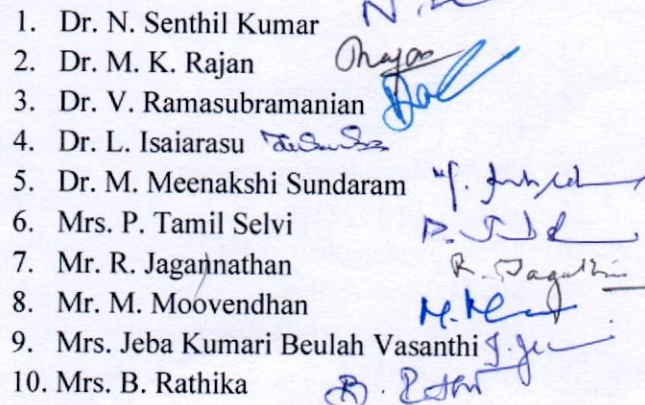 1. Dr. N. Senthil Kumar
2. Dr. M. K. Rajan
3. Dr. V. Ramasubramanian
4. Dr. L. Isaiarasu
5. Dr. M. Meenakshi Sundaram
6. Mrs. P. Tamil Selvi
7. Mr. R. Jagannathan R. Jagathin
8. Mr. M. Moovendhan
9. Mrs. Jeba Kumari Beulah Vasanthi
10. Mrs. B. Rathika